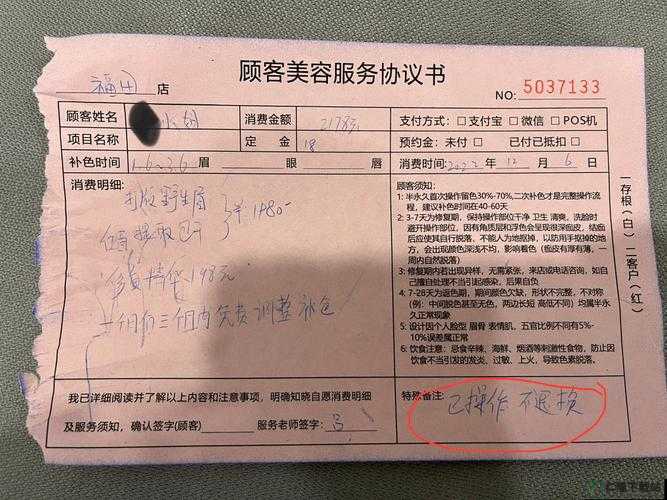 顾客美容服务协议书
福田 店
NO: 5037133
顾客姓名 小胡 消费金额 2178元 支付方式: □ 支付宝 □ 微信 □ POS机
项目名称 定 金 18 预约金: 未付 □ 已付已抵扣 □
补色时间 1.6~3.6 眉 眼 唇 消费时间: 2022 年 12 月 6 日
消费明细:
野生眉
1980-
198元
三个月内免费调整补色
顾客须知:
1 半永久首次操作留色30%-70%,二次补色才是完整操作流
程, 建议补色时间在40-60天
2 3-7天为修复期, 保持操作部位干净 卫生 清爽, 洗脸时
避开操作部位, 因有角质层和浮色会呈现很深痂皮, 结痂
后应使其自行脱落, 不能人为地抠掉, 以防用手抠掉的地
方, 会出现颜色深浅不均, 影响着色 (痂皮有厚有薄, 一
周内自然脱落)
3 修复期内若出现异样, 无需紧张, 来店或电话咨询, 如自
己擅自处理不当引起感染, 后果自负
4 7-28天为返色期, 期间颜色欠缺, 形状不完整, 不对称
(例: 中间脱色甚至无色, 两边长短 高低不同) 均属半永
久正常现象
5 设计因个人脸型 眉骨 表情肌, 五官比例不同有5%-
10%误差属正常
6 饮食注意: 忌食辛辣、海鲜、烟酒等刺激性食物, 防止因
饮食不当引发的发炎、过敏、上火, 导致色素脱落。
一存根(白) 二客户(红)
我已详细阅读并了解以上内容和注意事项, 明确知晓自愿消费明细
及服务须知, 确认签字(顾客) 服务老师签字:
特殊备注: 已操作 不退换